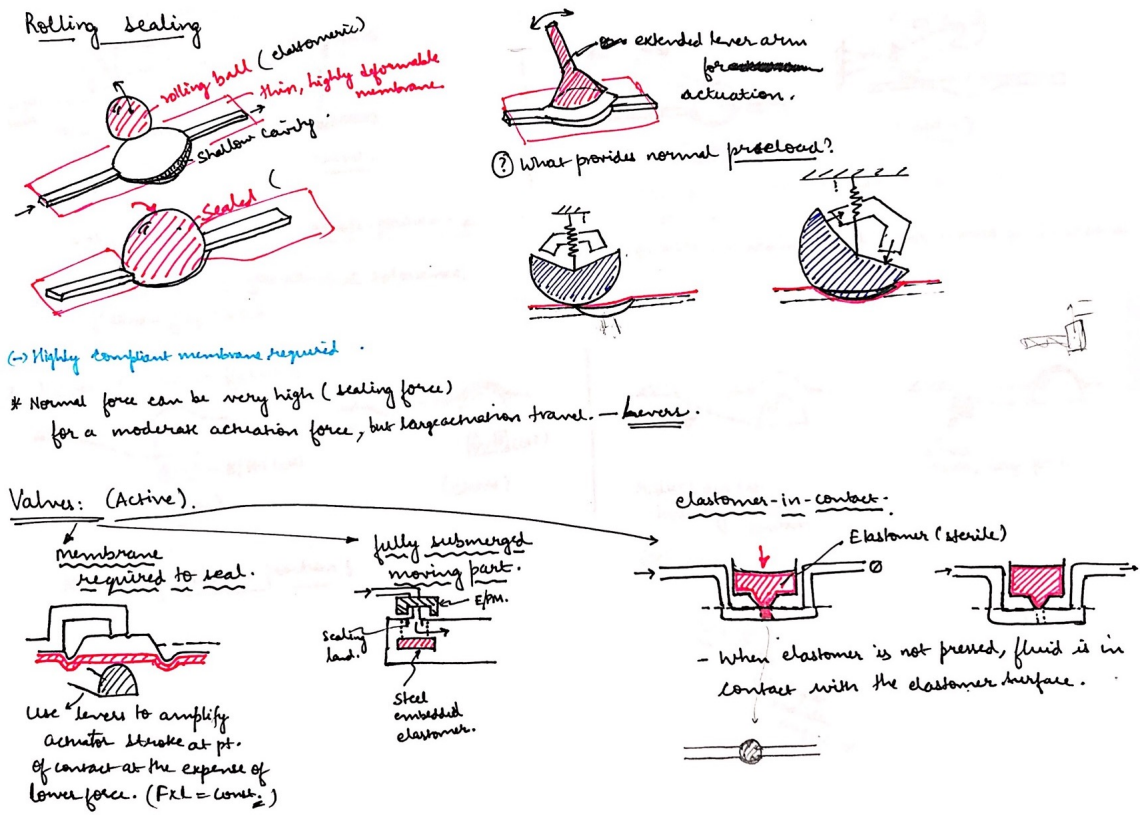 Rolling sealing
rolling ball (elastomeric)
thin, highly deformable
membrane
shallow cavity.
Sealed (
extended lever arm
for
actuation.
? What provides normal preload?
(-) Highly compliant membrane required.
* Normal force can be very high (sealing force)
for a moderate actuation force, but large actuation travel. — Levers.
Valves: (Active).
membrane
required to seal.
Use levers to amplify
actuator stroke at pt.
of contact at the expense of
lower force. (FxL = const.)
fully submerged
moving part.
E/PM.
Sealing
land.
Steel
embedded
elastomer.
elastomer-in-contact.
Elastomer (sterile)
- When elastomer is not pressed, fluid is in
contact with the elastomer surface.